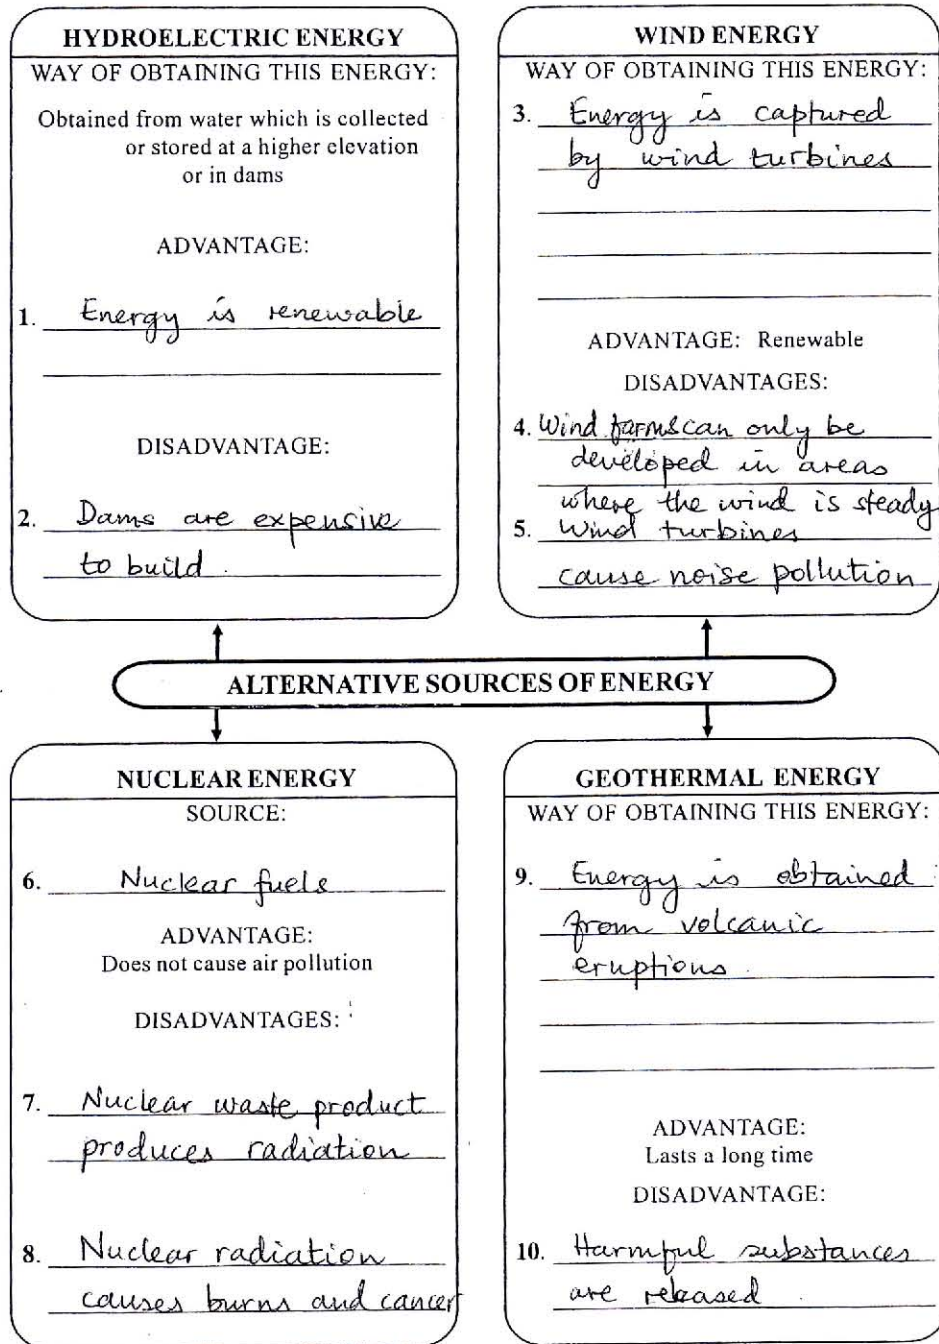 HYDROELECTRIC ENERGY
WAY OF OBTAINING THIS ENERGY:
Obtained from water which is collected
or stored at a higher elevation
or in dams
ADVANTAGE:
1. Energy is renewable
DISADVANTAGE:
2. Dams are expensive
to build.
WIND ENERGY
WAY OF OBTAINING THIS ENERGY:
3. Energy is captured
by wind turbines
ADVANTAGE: Renewable
DISADVANTAGES:
4. Wind farms can only be
developed in areas
where the wind is steady
5. Wind turbines
cause noise pollution
ALTERNATIVE SOURCES OF ENERGY
NUCLEAR ENERGY
SOURCE:
6. Nuclear fuels
ADVANTAGE:
Does not cause air pollution
DISADVANTAGES:
7. Nuclear waste product
produces radiation
8. Nuclear radiation
causes burns and cancer
GEOTHERMAL ENERGY
WAY OF OBTAINING THIS ENERGY:
9. Energy is obtained
from volcanic
eruptions.
ADVANTAGE:
Lasts a long time
DISADVANTAGE:
10. Harmful substances
are released.